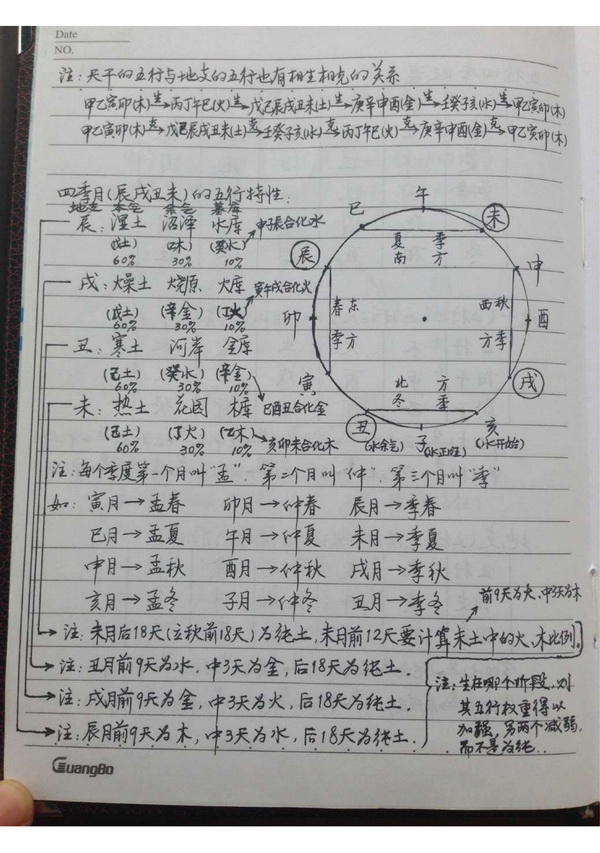 Date
NO.
注:天干的五行与地支的五行也有相生相克的关系
甲乙寅卯(木)生→丙丁午巳(火)生→戊己辰戌丑未(土)生→庚辛申酉(金)生→壬癸子亥(水)生→甲乙寅卯(木)
甲乙寅卯(木)克→戊己辰戌丑未(土)克→壬癸子亥(水)克→丙丁午巳(火)克→庚辛申酉(金)克→甲乙寅卯(木)
四季月(辰戌丑未)的五行特性:
地支 本气 余气 墓库
辰:湿土 沼泽 水库 申子辰合化水
(戊土) (乙木) (癸水)
60% 30% 10%
戌:燥土 燎原 火库 寅午戌合化火
(戊土) (辛金) (丁火)
60% 30% 10%
丑:寒土 河岸 金库
(己土) (癸水) (辛金) 巳酉丑合化金
60% 30% 10%
未:热土 花园 木库
(己土) (丁火) (乙木) 亥卯未合化木
60% 30% 10%
午
巳 未
夏 季
南 方
辰 申
春东 西秋
卯 酉
季方 方季
寅 戌
北 方
冬 季
丑 亥
(水余气) 子(水正旺) (水开始)
注:每个季度第一个月叫“孟”,第二个月叫“仲”,第三个月叫“季”
如:寅月→孟春 卯月→仲春 辰月→季春
巳月→孟夏 午月→仲夏 未月→季夏
申月→孟秋 酉月→仲秋 戌月→季秋
亥月→孟冬 子月→仲冬 丑月→季冬
前9天为火,中3天为木
注:未月后18天(立秋前18天)为纯土,未月前12天要计算未土中的火、木比例。
注:丑月前9天为水,中3天为金,后18天为纯土.
注:戌月前9天为金,中3天为火,后18天为纯土.
注:辰月前9天为木,中3天为水,后18天为纯土.
注:生在哪个阶段,则
其五行权重得以
加强,另两个减弱,
而不是为纯..
GuangBo